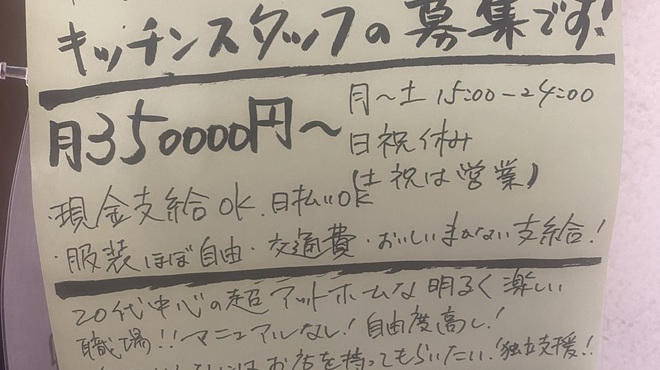 キッチンスタッフの募集です!
月350000円〜
月〜土 15:00-24:00
日祝休み
(土祝は営業)
・現金支給OK、日払いOK
・服装ほぼ自由・交通費・おいしいまかない支給!
20代中心の超アットホームな明るく楽しい
職場!!マニュアルなし!自由度高し!
お店を持ってもらいたい!独立支援!!